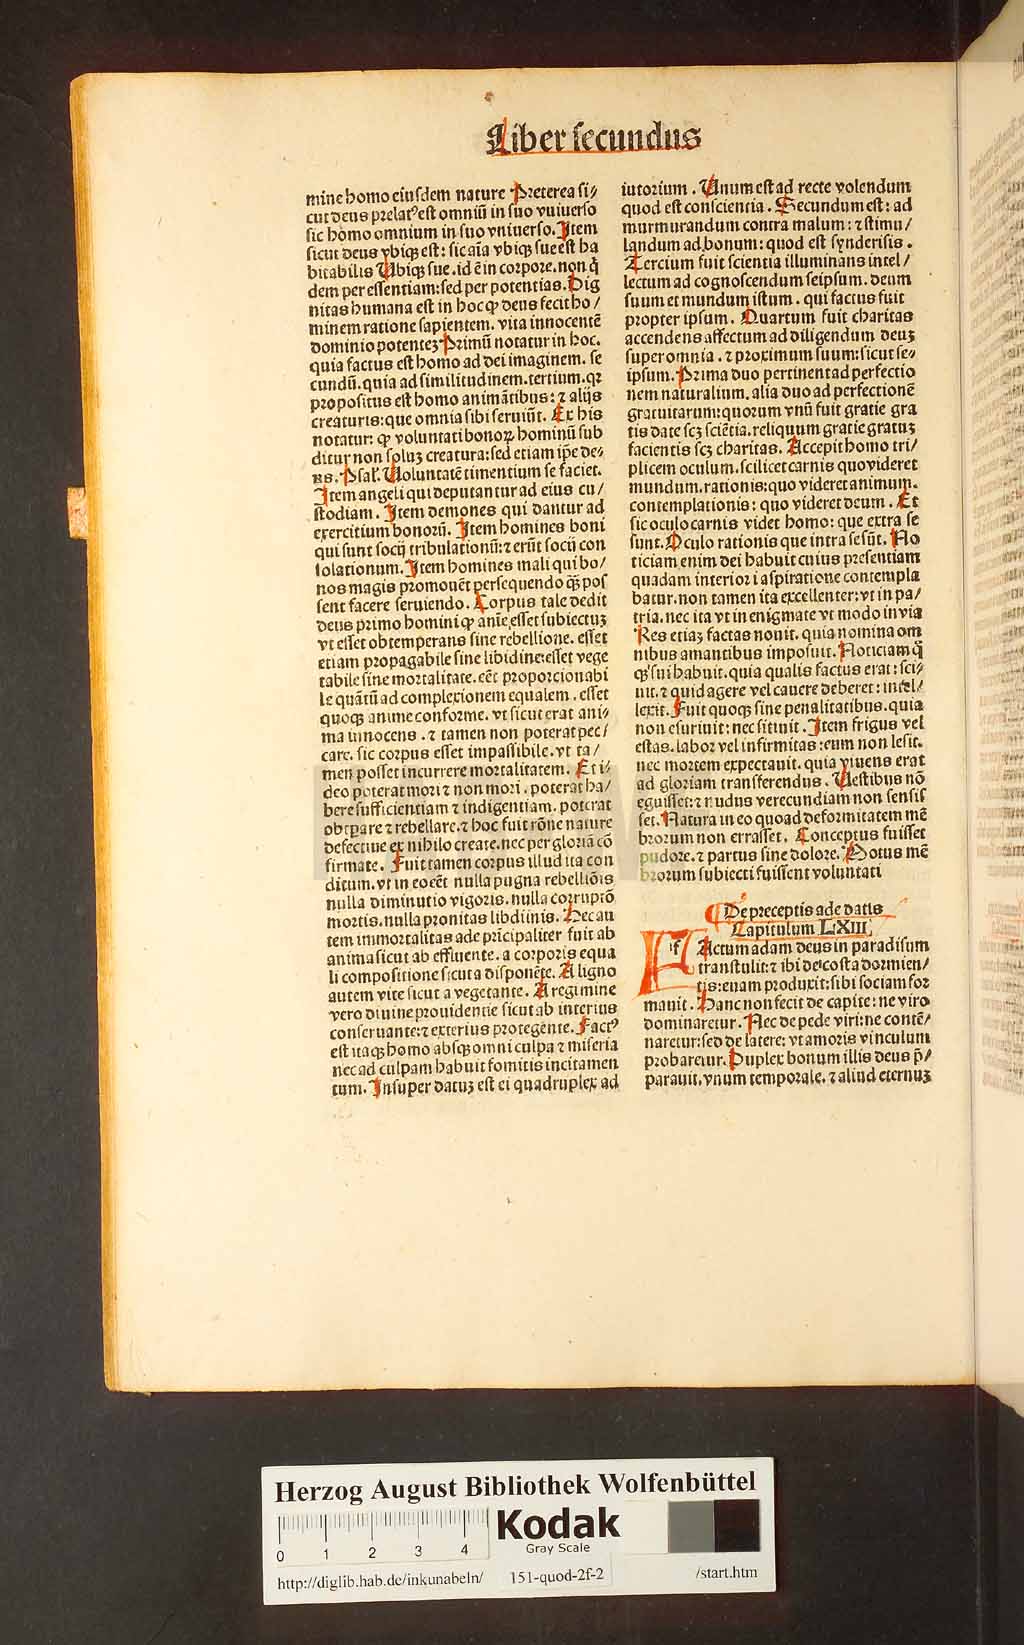 Liber secundus
mine homo eiusdem nature Preterea si⸗
cut deus prelatꝰ est omniū in suo vniuerso
sic homo omnium in suo vniuerso. Item
sicut deus vbiqꝫ est: sic aīa vbiqꝫ sue est ha
bitabilis Ubiqꝫ sue. id ē in corpore. non q̇
dem per essentiam: sed per potentias. Dig
nitas humana est in hoc qꝙ deus fecit ho/
minem ratione sapientem. vita innocentē
dominio potenteꝫ Primū notatur in hoc.
quia factus est homo ad dei imaginem. se
cundū. quia ad similitudinem. tertium. qꝛ
propositus est homo animātibus: ⁊ alijs
creaturis: que omnia sibi seruiūt. Ex his
notatur: ꝙ voluntati bonoꝝ hominū sub
ditur non soluꝫ creatura: sed etiam ip̄e de⸗
us. Psal. Uoluntatē timentium se faciet.
Item angeli qui deputantur ad eius cu/
stodiam. Item demones qui dantur ad
exercitium bonorū. Item homines boni
qui sunt socij tribulationū: ⁊ erūt socij con
solationum. Item homines mali qui bo/
nos magis promouēt persequendo qꝫ̄ pos
sent facere seruiendo. Corpus tale dedit
deus primo homini ꝙ anīe esset subiectuꝫ
vt esset obtemperans sine rebellione. esset
etiam propagabile sine libidine: esset vege
tabile sine mortalitate. eēt proporcionabi
le quātū ad complexionem equalem. esset
quoqꝫ anime conforme. vt sicut erat ani⸗
ma innocens. ⁊ tamen non poterat pec/
care. sic corpus esset impassibile. vt ta/
men posset incurrere mortalitatem. Et i⸗
deo poterat mori ⁊ non mori. poterat ha/
bere sufficientiam ⁊ indigentiam. poterat
obtpare ⁊ rebellare. ⁊ hoc fuit rōne nature
defectiue ex nihilo create. nec per gloriā cō
firmate. Fuit tamen corpus illud ita con
ditum. vt in eo eēt nulla pugna rebelliōis
nulla diminutio vigoris. nulla corrupiō
mortis. nulla pronitas libdiinis. Hec au
tem immortalitas ade prīcipaliter fuit ab
anima sicut ab effluente. a corporis equa
li compositione sicut a disponēte. A ligno
autem vite sicut a vegetante. A regimine
vero diuine prouidentie sicut ab interius
conseruante: ⁊ exterius protegente. Factꝰ
est itaqꝫ homo absqꝫ omni culpa ⁊ miseria
nec ad culpam habuit fomitis incitamen
tum. Insuper datuꝫ est ei quadruplex ad
iutorium. Unum est ad recte volendum
quod est conscientia. Secundum est: ad
murmurandum contra malum: ⁊ stimu/
landum ad bonum: quod est synderisis.
Tercium fuit scientia illuminans intel/
lectum ad cognoscendum seipsum. deum
suum et mundum istum. qui factus fuit
propter ipsum. Quartum fuit charitas
accendens affectum ad diligendum deuꝫ
super omnia. ⁊ proximum suum: sicut se⸗
ipsum. Prima duo pertinent ad perfectio
nem naturalium. alia duo ad perfectionē
gratuitarum: quorum vnū fuit gratie gra
tis date scꝫ sciētia. reliquum gratie gratuꝫ
facientis scꝫ charitas. Accepit homo tri/
plicem oculum. scilicet carnis quo videret
mundum. rationis: quo videret animum.
contemplationis: quo videret deum. Et
sic oculo carnis videt homo: que extra se
sunt. Oculo rationis que intra se sūt. No
ticiam enim dei habuit cuius presentiam
quadam interiori aspiratione contempla
batur. non tamen ita excellenter: vt in pa/
tria. nec ita vt in enigmate vt modo in via
Res etiaꝫ factas nouit. quia nomina om
nibus amantibus imposuit. Noticiam q̇
qꝫ sui habuit. quia qualis factus erat: sci⸗
uit. ⁊ quid agere vel cauere deberet: intel/
lexit. Fuit quoqꝫ sine penalitatibus. quia
non esuriuit: nec sitiuit. Item frigus vel
estas. labor vel infirmitas: eum non lesit.
nec mortem expectauit. quia viuens erat
ad gloriam transferendus. Uestibus nō
eguisset: ⁊ nudus verecundiam non sensis
set. Natura in eo quoad deformitatem mē
brorum non errasset. Conceptus fuisset
pudore. ⁊ partus sine dolore. Motus mē
brorum subiecti fuissent voluntati
De preceptis ade datis
Capitulum LXIII
f Actum adam deus in paradisum
transtulit: ⁊ ibi de costa dormien/
tis: euam produxit: sibi sociam for
mauit. Hanc non fecit de capite: ne viro
dominaretur. Nec de pede viri: ne contē/
naretur: sed de latere: vt amoris vinculum
probaretur. Duplex bonum illis deus p̄/
parauit. vnum temporale. ⁊ aliud eternuꝫ
Herzog August Bibliothek Wolfenbüttel
0 1 2 3 4
Kodak
Gray Scale
http://diglib.hab.de/inkunabeln/ 151-quod-2f-2 /start.htm